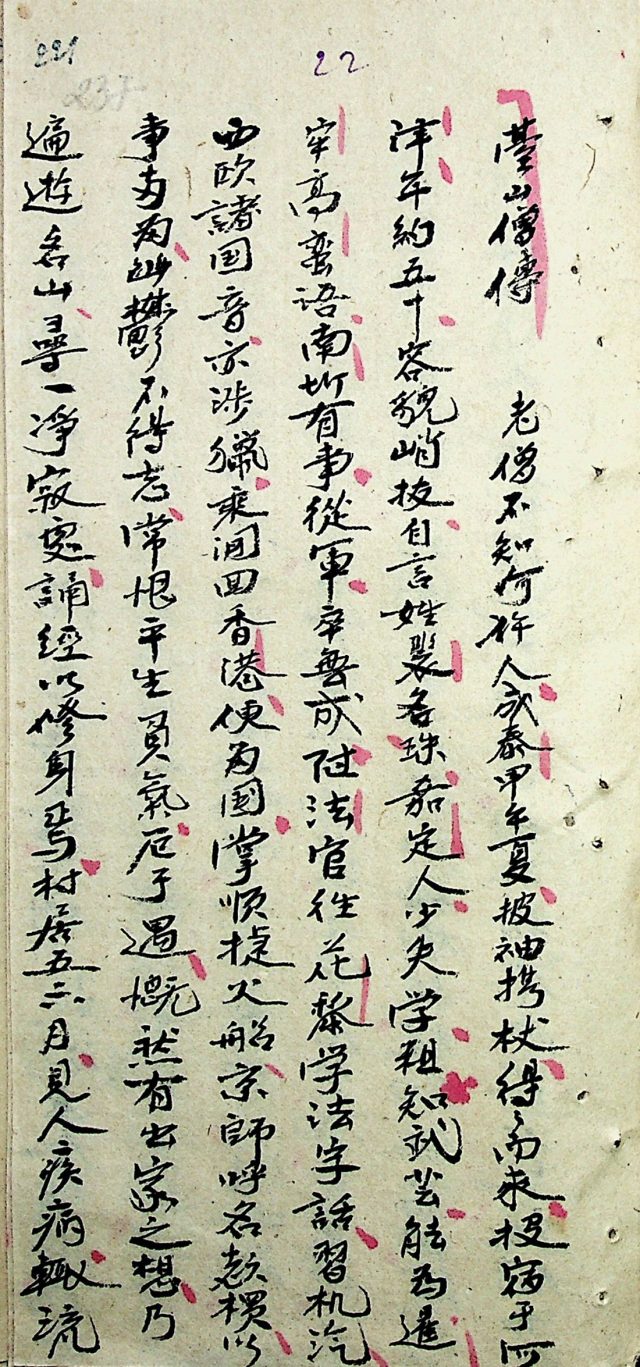 221
22
237
瑩山僧傳 老僧不知何許人成泰甲午夏披袖携杖得々而来投宿于河
津年約五十容貌峭拔自言姓裴名珠嘉定人少失学粗知武芸能为暹
牢高蛮语南圻有事從軍卒無成陀法官往花黎学法字話習机汽
西欧諸国音亦涉獵乘间回香港使为国掌順捷火船京師呼名款横以
事与为訕鬱不得志常恨平生負氣厄于遇慨然有出家之想乃
遍遊名山尋一凈寂処誦經以修身焉村居五六月見人疾病輒流